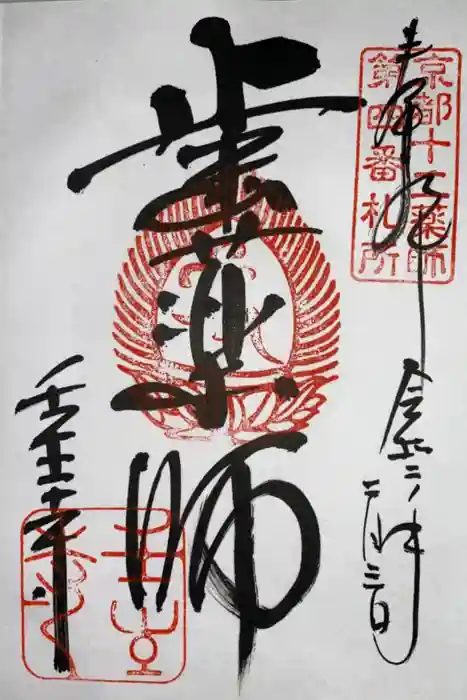 奉拝
京都十二薬師
第四番札所
令和二年二月三日
歯薬師
壬生寺